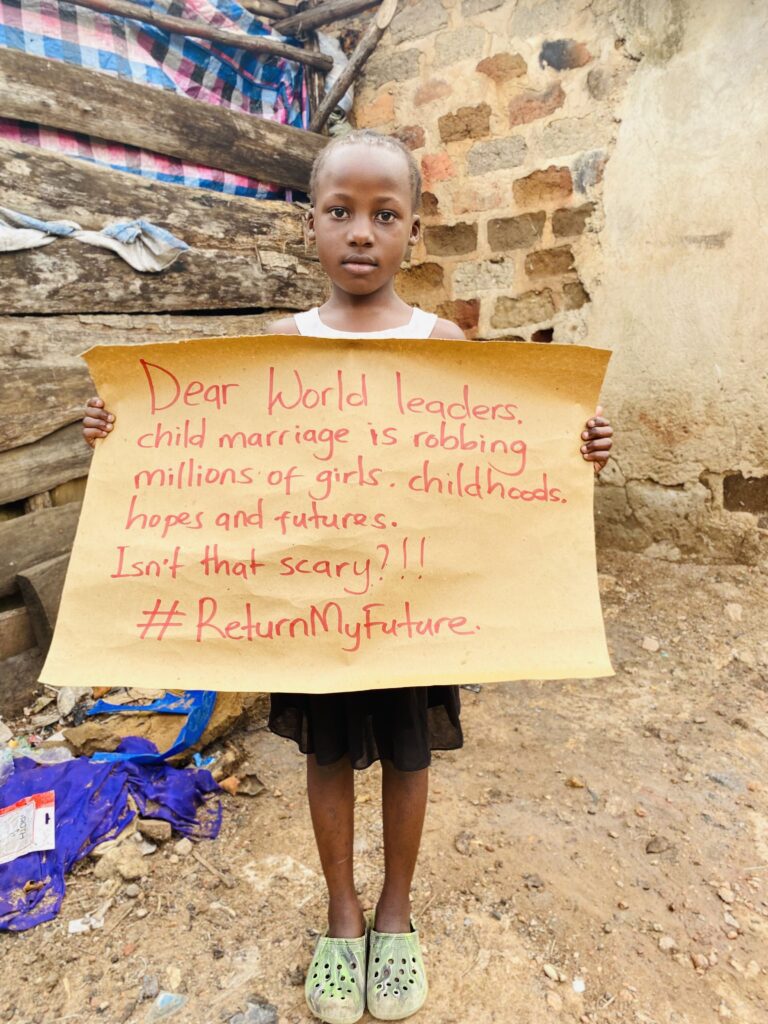 Dear World leaders.
child marriage is robbing
millions of girls. childhoods.
hopes and futures.
Isn't that scary?!!
#ReturnMyFuture.